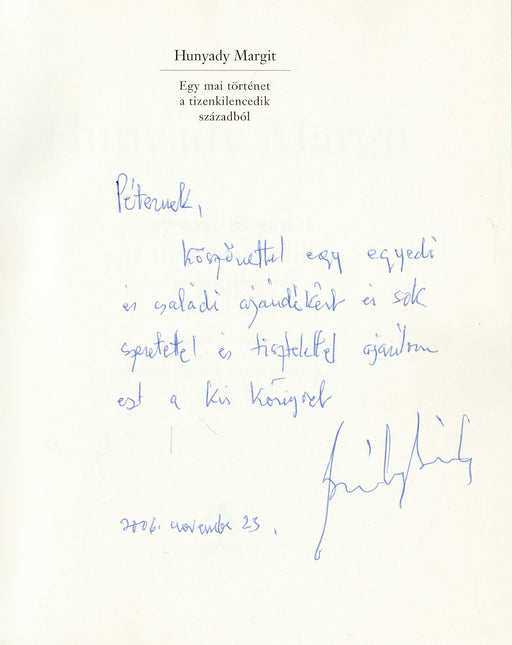 Hunyady Margit
Egy mai történet
a tizenkilencedik
századból
Péternek,
Köszönettel egy egyedi
és családi ajándékért és sok
szeretettel és tisztelettel ajánlom
ezt a kis könyvet
2006. november 23.